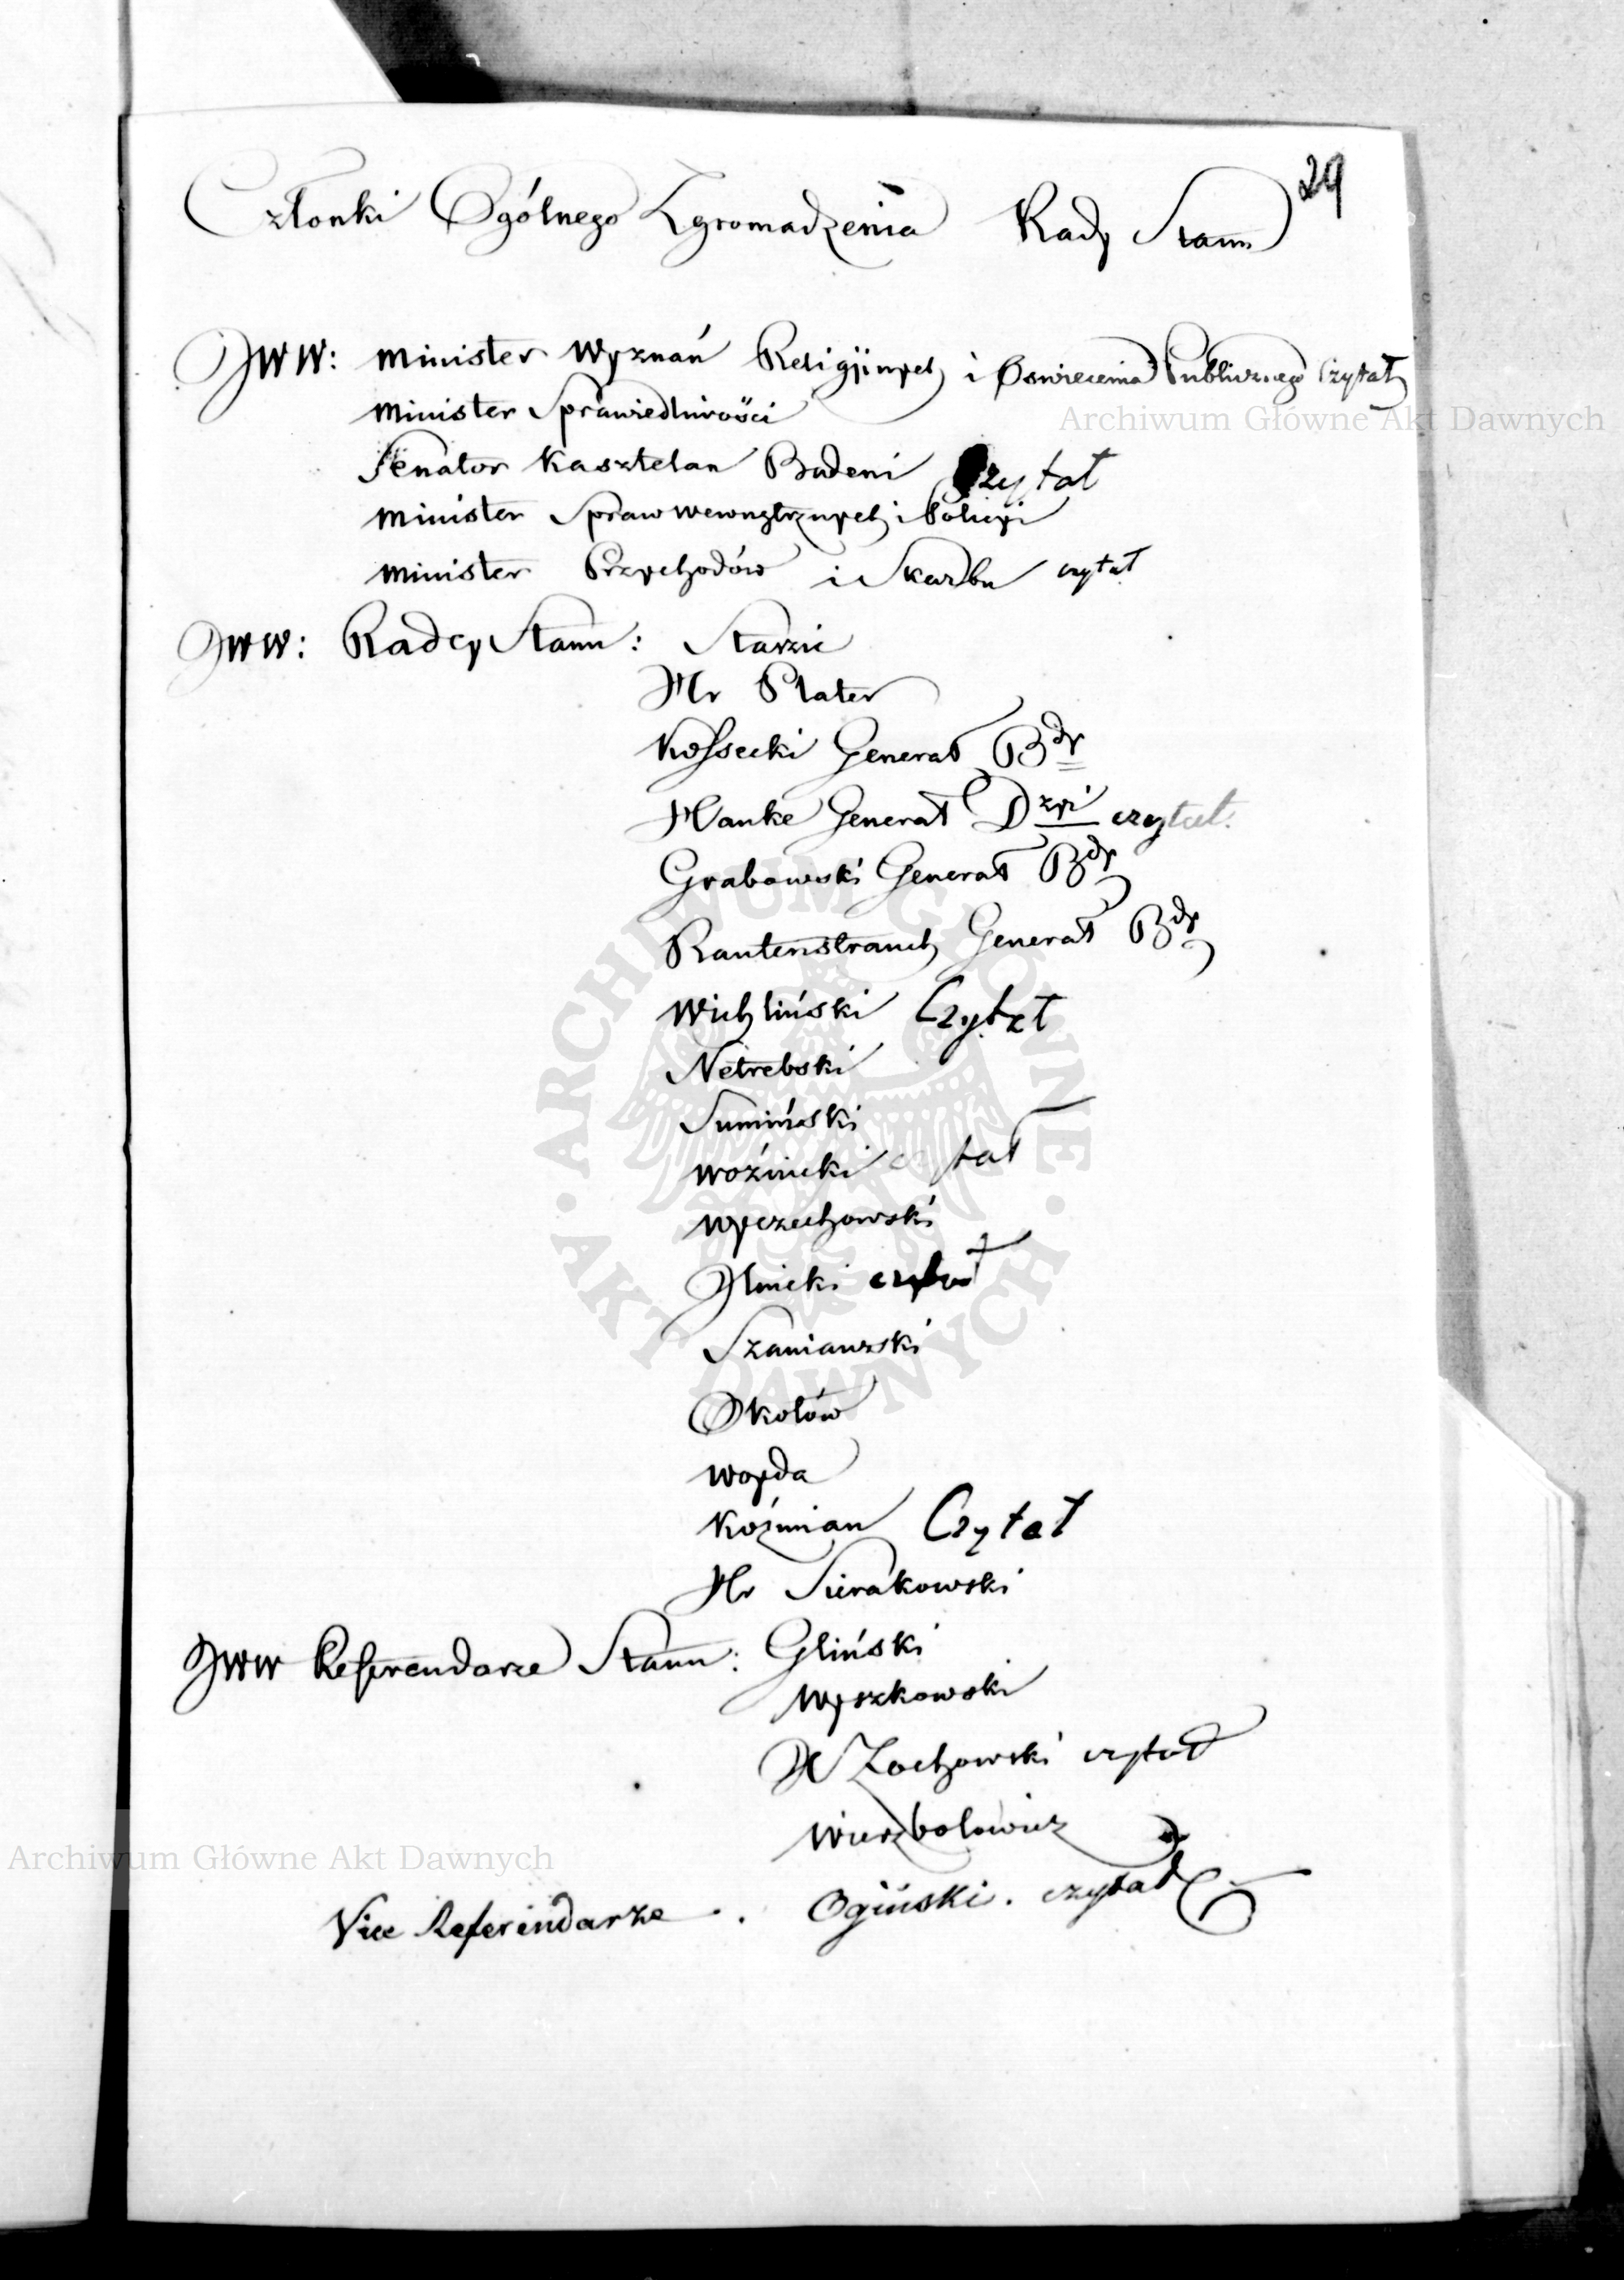 29
Członki Ogólnego Zgromadzenia Rady Stanu
JWW: Minister Wyznań Religijnych i Oswiecenia Publicznego Czytał
Minister Sprawiedliwości
Senator Kasztelan Badeni Czytał
Minister Spraw wewnętrznych i Policyi
Minister Przychodów i Skarbu czytał
JWW: Radcy Stanu: Staszic
Hr Plater
Kossecki Generał Bdy
Hauke Generał Dzyi czytał.
Grabowski Generał Bdy
Rautenstrauch Generał Bdy
Wichliński Czytał
Netrebski
Sumiński
Woźnicki czytał
Wyczechowski
Jlnicki czytał
Szaniawski
Okołów
Woyda
Koźmian Czytał
Hr Sierakowski
JWW Referendarze Stanu: Gliński
Wyszkowski
X Żochowski czytał
Wierzbołowicz
Vice Referendarze . Ogiński . czytał
Archiwum Główne Akt Dawnych
ARCHIWUM GŁÓWNE · AKT DAWNYCH ·
Archiwum Główne Akt Dawnych